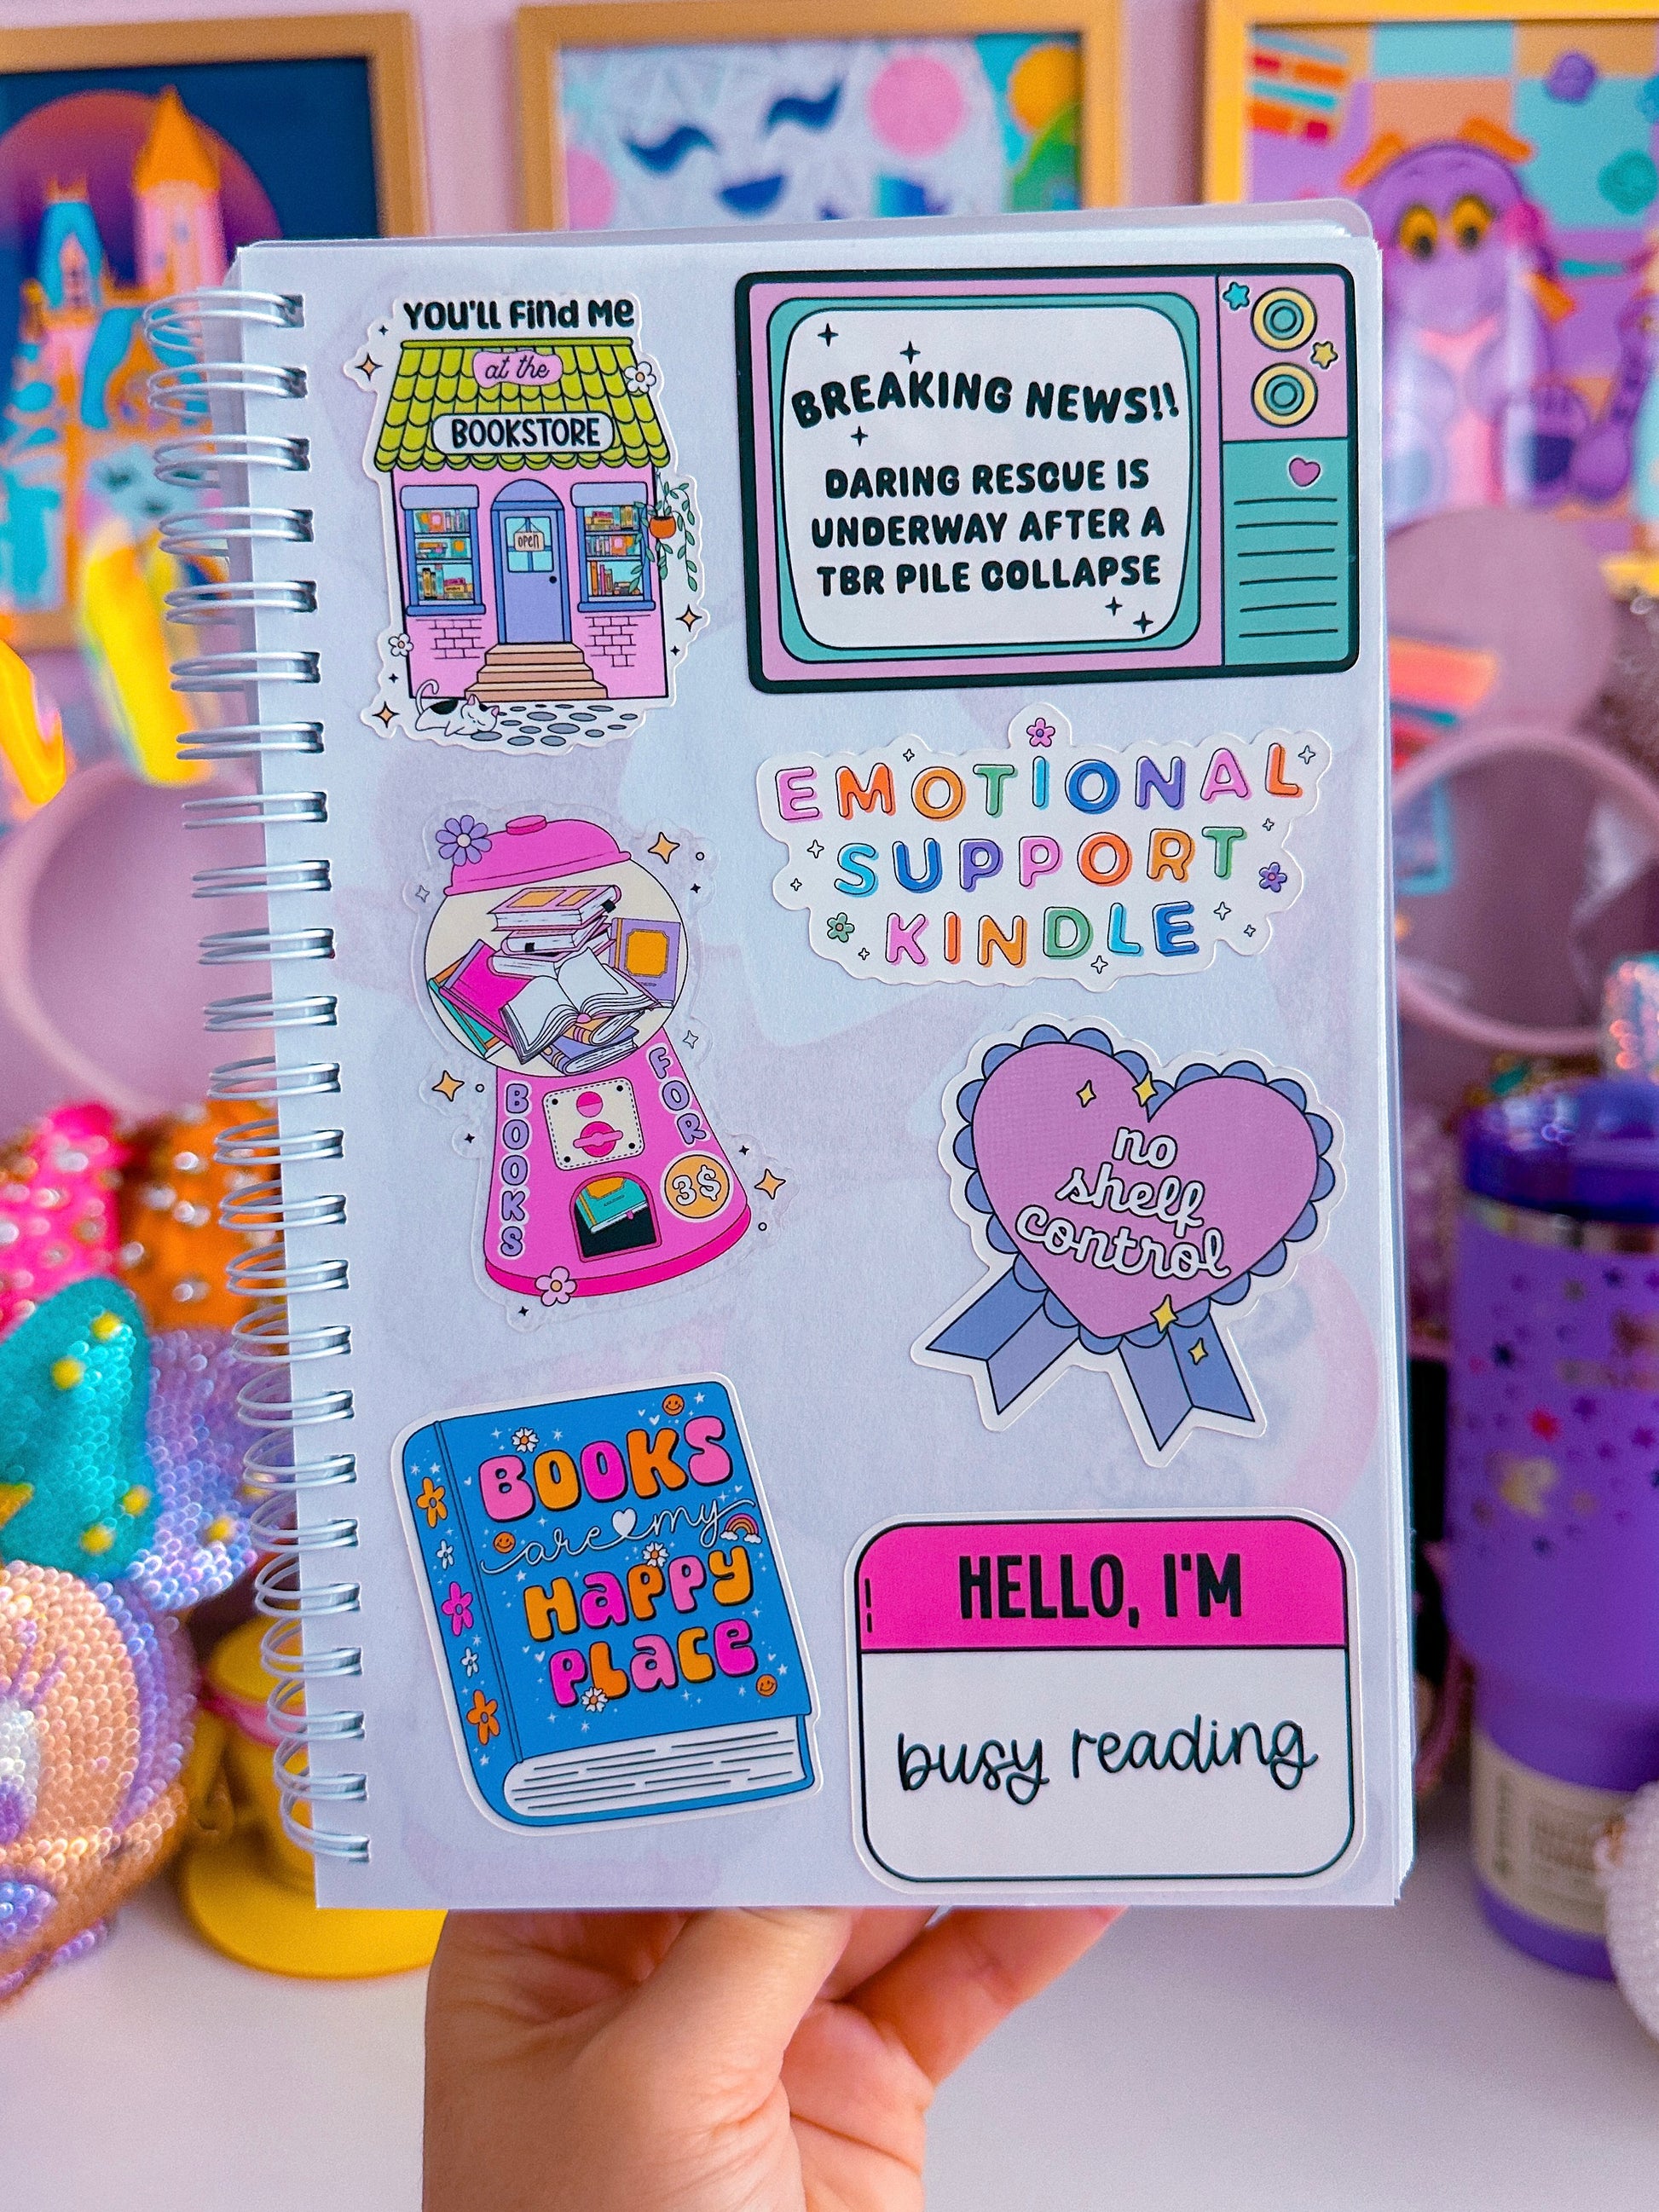 YOU'LL FIND ME
at the
BOOKSTORE
open
BREAKING NEWS!!
DARING RESCUE IS
UNDERWAY AFTER A
TBR PILE COLLAPSE
EMOTIONAL
SUPPORT
KINDLE
BOOKS
FOR
3$
no
shelf
control
BOOKS
are my
HAPPY
PLACE
HELLO, I'M
busy reading